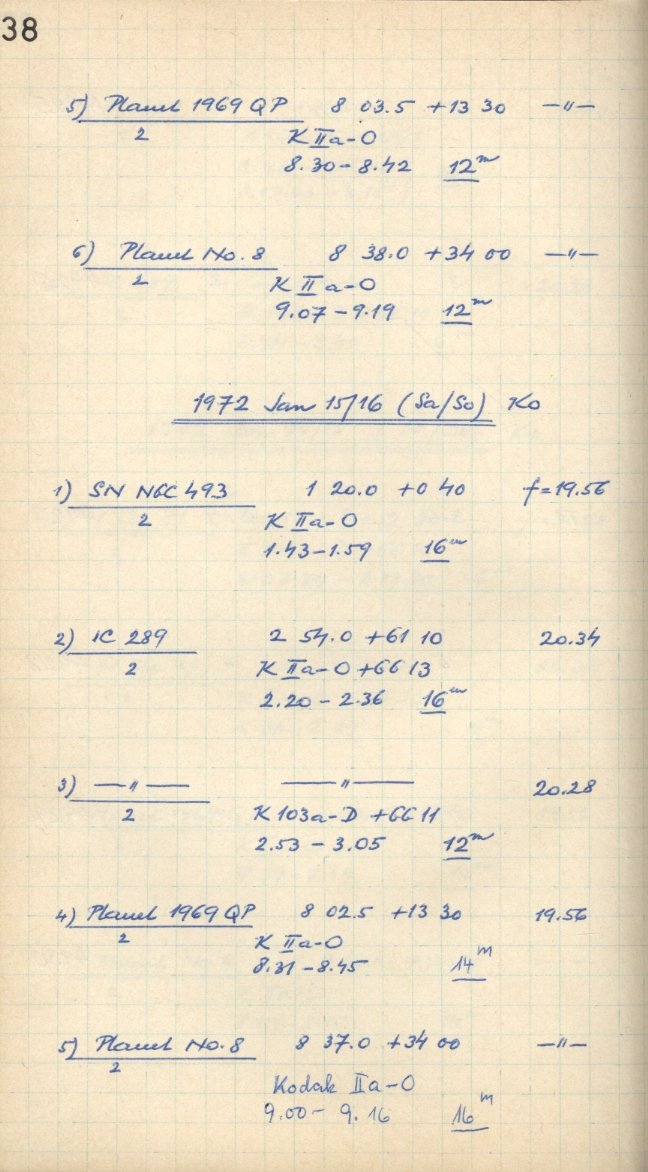 38
5) Planet 1969 QP 8 03.5 +13 30 —〃—
2 K IIa-O
8.30 - 8.42 12m
6) Planet No. 8 8 38.0 +34 00 —〃—
2 K II a-O
9.07 - 9.19 12m
1972 Jan 15/16 (Sa/So) Ko
1) SN NGC 493 1 20.0 +0 40 f=19.56
2 K IIa-O
1.43 - 1.59 16m
2) IC 289 2 54.0 +61 10 20.34
2 K IIa-O +66 13
2.20 - 2.36 16m
3) —〃— —〃— 20.28
2 K 103a-D +66 11
2.53 - 3.05 12m
4) Planet 1969 QP 8 02.5 +13 30 19.56
2 K IIa-O
8.31 - 8.45 14m
5) Planet No. 8 8 37.0 +34 00 —〃—
2
Kodak IIa-O
9.00 - 9.16 16m